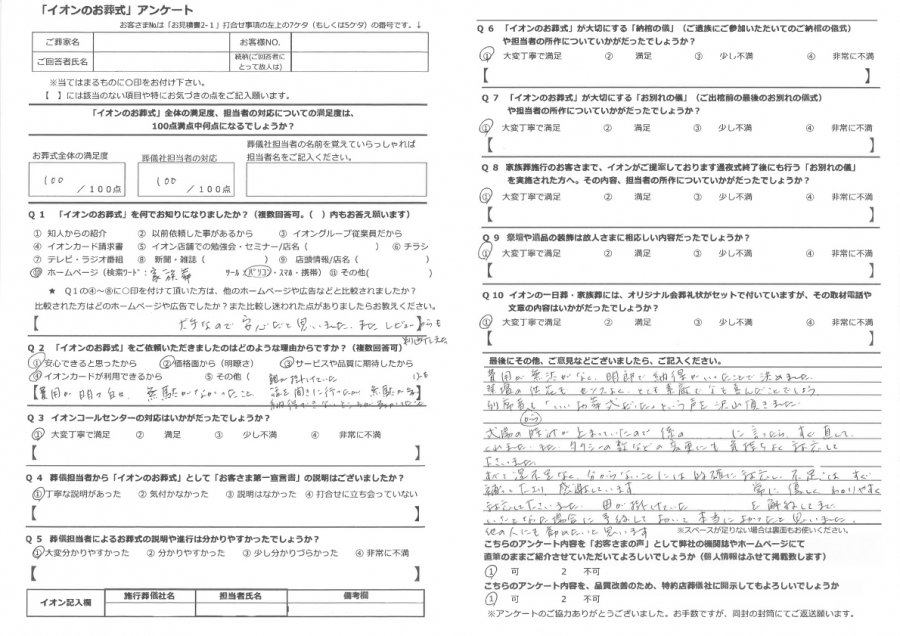 「イオンのお葬式」アンケート
お客さまNo.は「お見積書2-1」打合せ事項の左上の7ケタ（もしくは5ケタ）の番号です。↓
ご葬家名 お客様NO.
ご回答者氏名 続柄(ご回答者にとって故人は)
※当てはまるものに〇印をお付け下さい。
【 】には該当のない項目や特にお気づきの点をご記入願います。
「イオンのお葬式」全体の満足度、担当者の対応についての満足度は、
100点満点中何点になるでしょうか？
お葬式全体の満足度 葬儀社担当者の対応 葬儀社担当者の名前を覚えていらっしゃれば
担当者名をご記入ください。
100 /100点 100 /100点
Q１ 「イオンのお葬式」を何でお知りになりましたか？（複数回答可。( ）内もお答え願います）
① 知人からの紹介 ② 以前依頼した事があるから ③ イオングループ従業員だから
④ イオンカード請求書 ⑤ イオン店舗での勉強会・セミナー/店名（ ） ⑥ チラシ
⑦ テレビ・ラジオ番組 ⑧ 新聞・雑誌（ ） ⑨ 店頭情報/店名（ ）
⑩ ホームページ（検索ワード：家族葬 ツール：パソコン・スマホ・携帯）⑪ その他( )
★ Q１の④～⑧に〇印を付けて頂いた方は、他のホームページや広告などと比較されましたか？
比較された方はどのホームページや広告でしたか？また比較し迷われた点がありましたらお教えください。
【 大手なので安心だと思いました。また レビューからも 】
判断でした
Q２ 「イオンのお葬式」をご依頼いただきましたのはどのような理由からですか？（複数回答可）
①安心できると思ったから ②価格面から（明瞭さ） ③サービスや品質に期待したから
④イオンカードが利用できるから ⑤ その他（
【 費用が明白で、無駄がなかったこと
Q３ イオンコールセンターの対応はいかがだったでしょうか？
① 大変丁寧で満足 ② 満足 ③ 少し不満 ④ 非常に不満
【 】
Q４ 葬儀担当者から「イオンのお葬式」として「お客さま第一宣言書」の説明はございましたか？
①丁寧な説明があった ② 気付かなかった ③ 説明はなかった ④ 打合せに立ち会っていない
【 】
Q５ 葬儀担当者によるお葬式の説明や進行は分かりやすかったでしょうか？
①大変分かりやすかった ② 分かりやすかった ③ 少し分かりづらかった ④ 非常に不満
【 】
イオン記入欄 施行葬儀社名 担当者氏名 備考欄
Q６ 「イオンのお葬式」が大切にする「納棺の儀」（ご遺族にご参加いただいてのご納棺の儀式）
や担当者の所作についていかがだったでしょうか？
① 大変丁寧で満足 ② 満足 ③ 少し不満 ④ 非常に不満
【 】
Q７ 「イオンのお葬式」が大切にする「お別れの儀」（ご出棺前の最後のお別れの儀式）
や担当者の所作についていかがだったでしょうか？
① 大変丁寧で満足 ② 満足 ③ 少し不満 ④ 非常に不満
【 】
Q８ 家族葬施行のお客さまで、イオンがご提案しております通夜式終了後にも行う「お別れの儀」
を実施された方へ。その内容、担当者の所作についていかがだったでしょうか？
① 大変丁寧で満足 ② 満足 ③ 少し不満 ④ 非常に不満
【 】
Q９ 祭壇や遺品の装飾は故人さまに相応しい内容だったでしょうか？
① 大変丁寧で満足 ② 満足 ③ 少し不満 ④ 非常に不満
【 】
Q10 イオンの一日葬・家族葬には、オリジナル会葬礼状がセットで付いていますが、その取材電話や
文章の内容はいかがだったでしょうか？
① 大変丁寧で満足 ② 満足 ③ 少し不満 ④ 非常に不満
【 】
最後にその他、ご意見などございましたら、ご記入ください。
費用が無駄がなく、明朗で納得がいったことで決めました。
列席者も「いいお葬式だった」という声を沢山頂きました。
式場の時計が止まっていたので係の に言ったら、すぐ直して
くれました。また、タクシーの数などの変更にも気持ちよく対応して
下さいました。
感謝しています 常に優しく わかりやすく
対応して下さいました。
本当によかったと思いました。
他の人にも勧めたいと思います
※スペースが足りない場合は裏面もお使いください。
こちらのアンケート内容を「お客さまの声」として弊社の機関誌やホームページにて
直筆のままご紹介させていただいてよろしいでしょうか（個人情報はふせて掲載致します）
１ 可 ２ 不可
こちらのアンケート内容を、品質改善のため、特約店葬儀社に開示してもよろしいでしょうか
１ 可 ２ 不可
※アンケートのご協力ありがとうございました。お手数ですが、同封の封筒にてご返送願います。